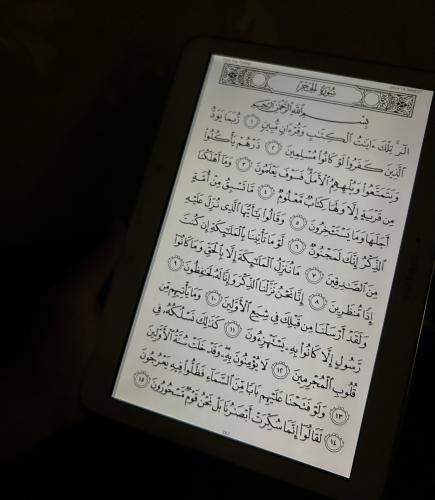 سُورَةُ الحِجْرِ
بِسْمِ اللَّهِ الرَّحْمَٰنِ الرَّحِيمِ
الٓر ۚ تِلْكَ ءَايَٰتُ الْكِتَٰبِ وَقُرْءَانٍ مُّبِينٍ ١ رُّبَمَا يَوَدُّ
الَّذِينَ كَفَرُوا لَوْ كَانُوا مُسْلِمِينَ ٢ ذَرْهُمْ يَأْكُلُوا
وَيَتَمَتَّعُوا وَيُلْهِهِمُ الْأَمَلُ ۖ فَسَوْفَ يَعْلَمُونَ ٣ وَمَا أَهْلَكْنَا
مِن قَرْيَةٍ إِلَّا وَلَهَا كِتَابٌ مَّعْلُومٌ ٤ مَّا تَسْبِقُ مِنْ أُمَّةٍ
أَجَلَهَا وَمَا يَسْتَـْٔخِرُونَ ٥ وَقَالُوا يَٰٓأَيُّهَا الَّذِي نُزِّلَ عَلَيْهِ
الذِّكْرُ إِنَّكَ لَمَجْنُونٌ ٦ لَّوْ مَا تَأْتِينَا بِالْمَلَٰٓئِكَةِ إِن كُنتَ
مِنَ الصَّٰدِقِينَ ٧ مَا نُنَزِّلُ الْمَلَٰٓئِكَةَ إِلَّا بِالْحَقِّ وَمَا كَانُوا
إِذًا مُّنظَرِينَ ٨ إِنَّا نَحْنُ نَزَّلْنَا الذِّكْرَ وَإِنَّا لَهُ لَحَٰفِظُونَ ٩
وَلَقَدْ أَرْسَلْنَا مِن قَبْلِكَ فِي شِيَعِ الْأَوَّلِينَ ١٠ وَمَا يَأْتِيهِم مِّن
رَّسُولٍ إِلَّا كَانُوا بِهِ يَسْتَهْزِءُونَ ١١ كَذَٰلِكَ نَسْلُكُهُ فِي
قُلُوبِ الْمُجْرِمِينَ ١٢ لَا يُؤْمِنُونَ بِهِ ۖ وَقَدْ خَلَتْ سُنَّةُ الْأَوَّلِينَ
١٣ وَلَوْ فَتَحْنَا عَلَيْهِم بَابًا مِّنَ السَّمَاءِ فَظَلُّوا فِيهِ يَعْرُجُونَ
١٤ لَقَالُوا إِنَّمَا سُكِّرَتْ أَبْصَٰرُنَا بَلْ نَحْنُ قَوْمٌ مَّسْحُورُونَ ١٥